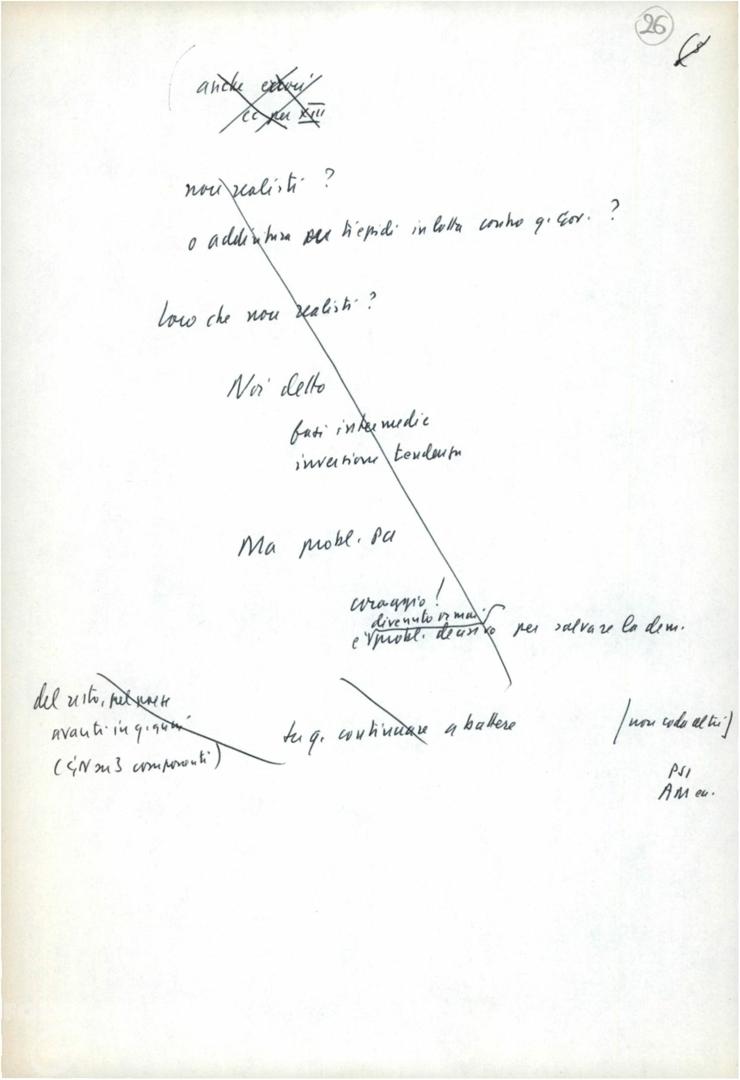 26
anche
cc per XIII
non realisti ?
o addirittura tiepidi in lotta contro q. gov. ?
Loro che non realisti ?
Noi detto
fasi intermedie
inversione tendenza
Ma probl. PCI
coraggio !
divenuto ormai
è probl. decisivo per salvare la dem.
del resto, nel paese
avanti in q. anni
( 3 componenti )
su q. continuare a battere
(non coda altrui)
PSI